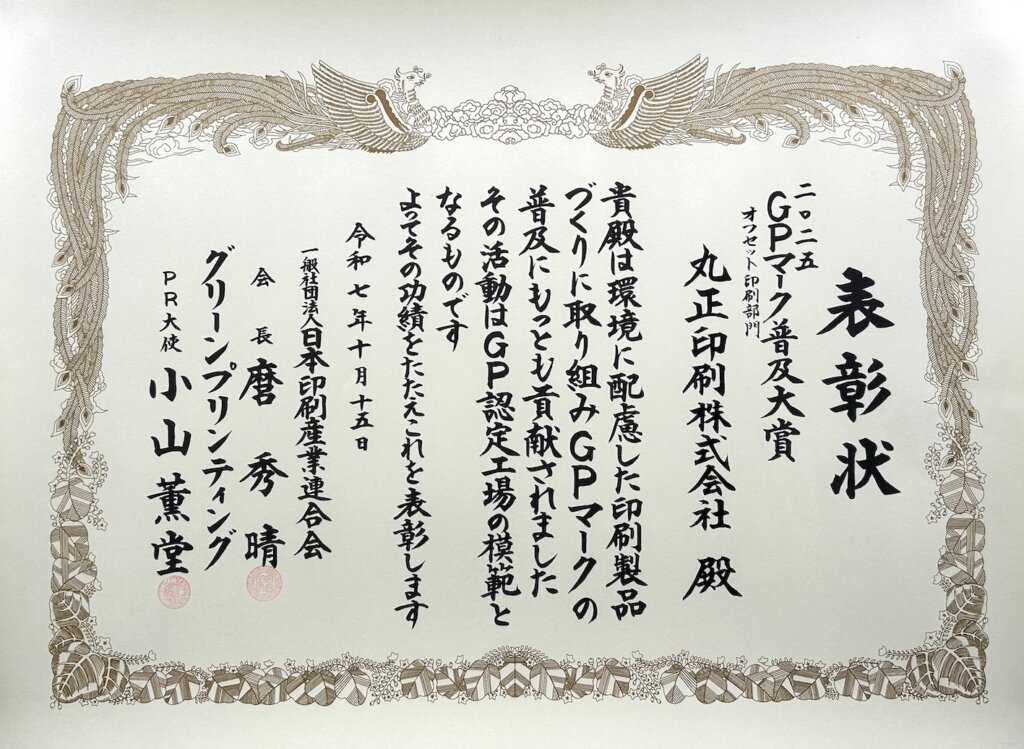 表彰状
二〇二五
GPマーク普及大賞
オフセット印刷部門
丸正印刷株式会社 殿
貴殿は環境に配慮した印刷製品
づくりに取り組みGPマークの
普及にもっとも貢献されました
その活動はGP認定工場の模範と
なるものです
よってその功績をたたえこれを表彰します
令和七年十月十五日
一般社団法人日本印刷産業連合会
会長 麿 秀晴
グリーンプリンティング
PR大使 小山薫堂